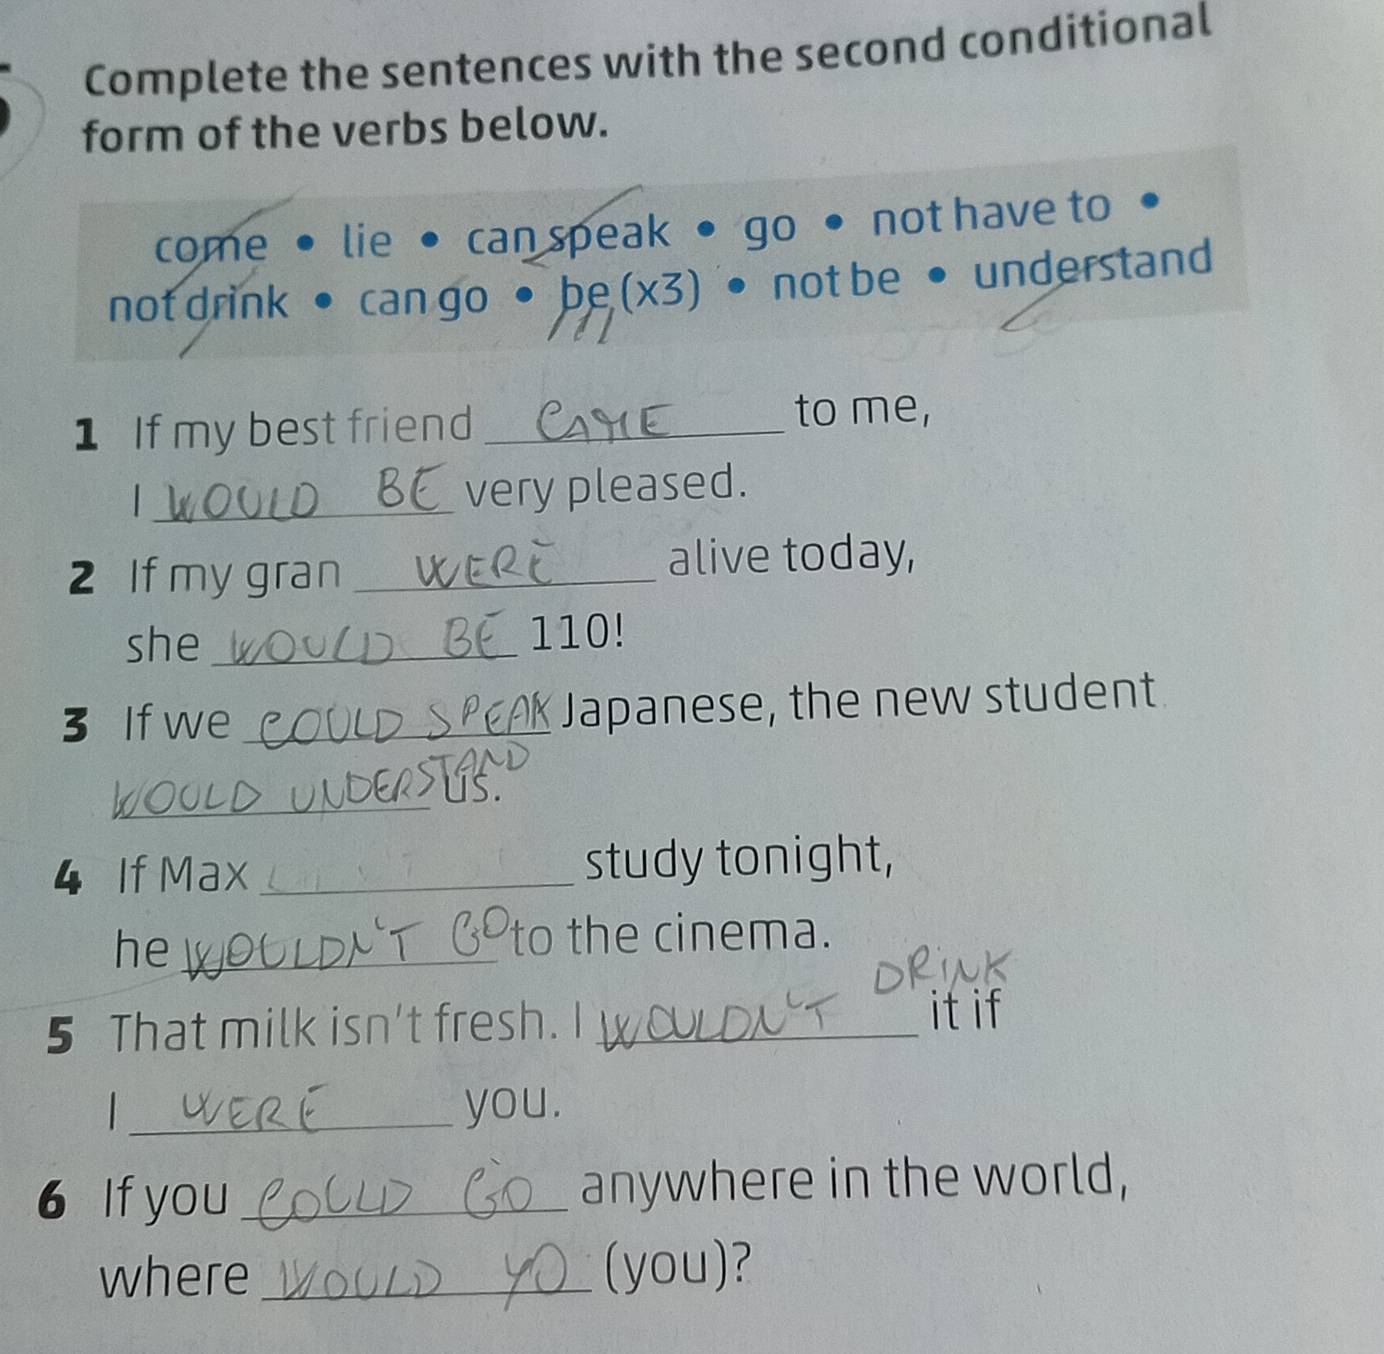 Complete the sentences with the second conditional
form of the verbs below.
come • lie • can speak • go • not have to •
not drink • can go • be (x3) • not be • understand
1 If my best friend CAME to me,
I WOULD BE very pleased.
2 If my gran WERE alive today,
she WOULD BE 110!
3 If we COULD SPEAK Japanese, the new student
WOULD UNDERSTAND us.
4 If Max ___ study tonight,
he WOULDN'T GO to the cinema.
5 That milk isn't fresh. I WOULDN'T DRINK it if
I WERE you.
6 If you COULD GO anywhere in the world,
where WOULD YO (you)?